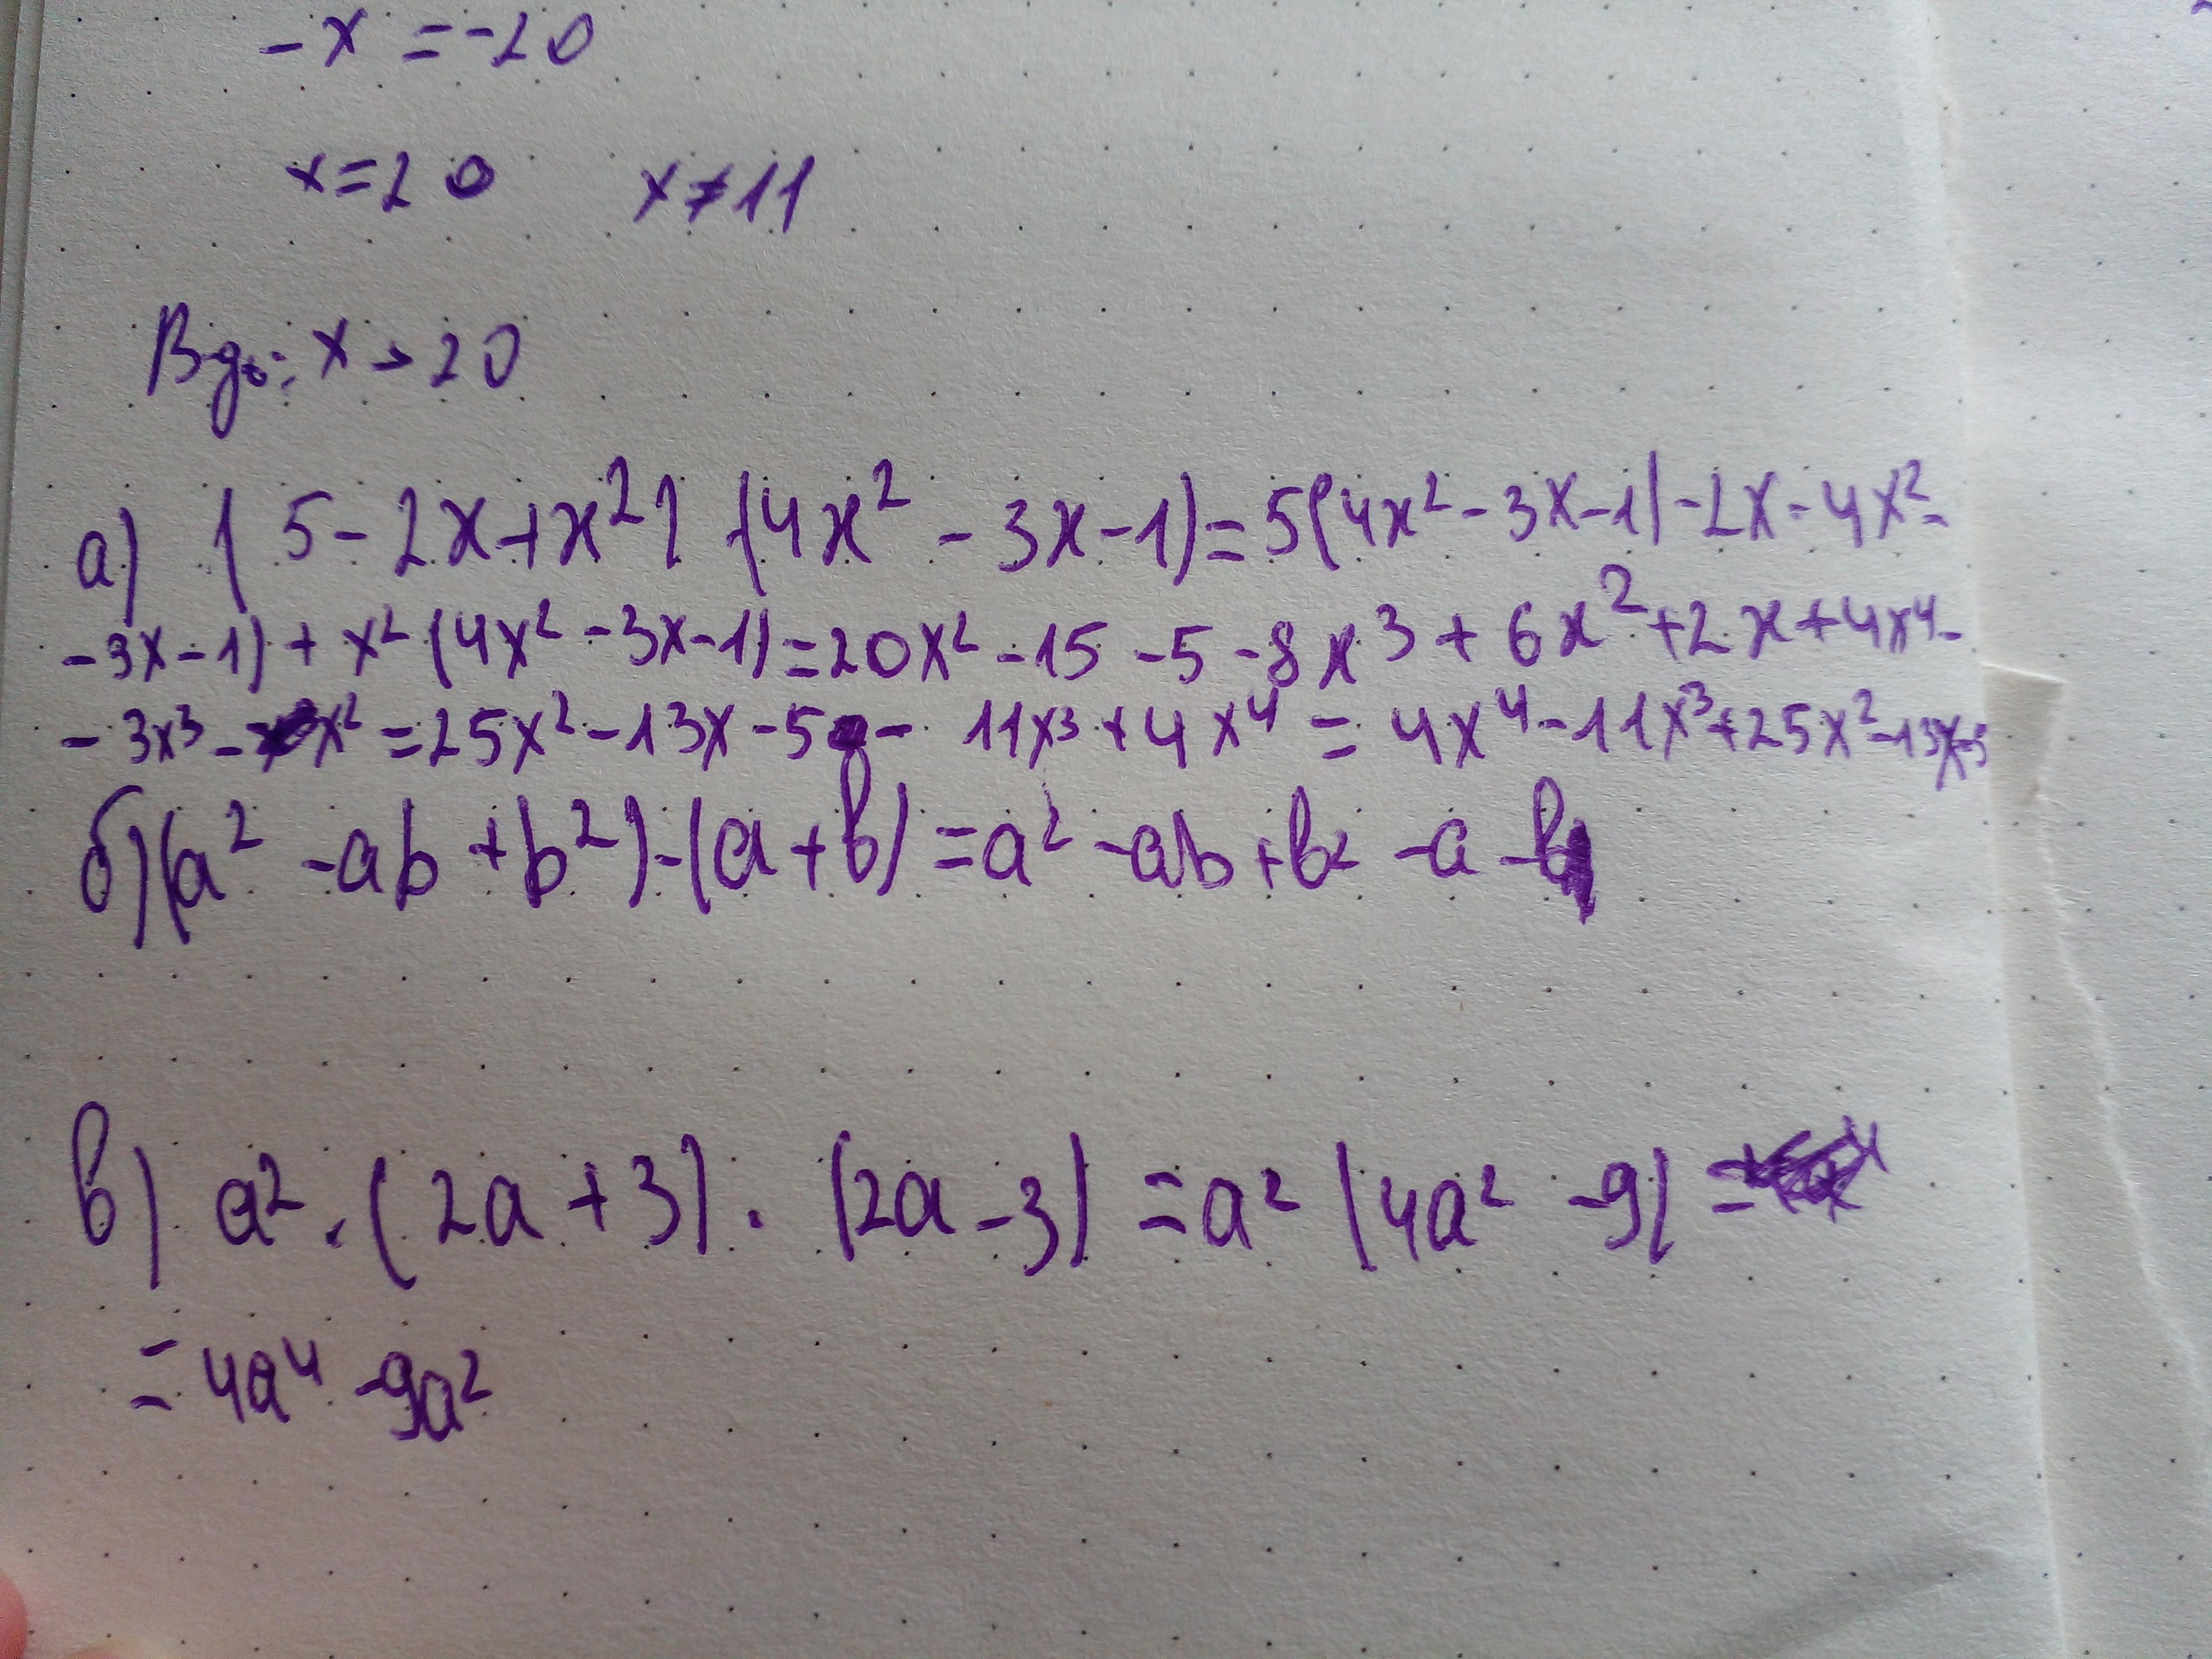 -x = -20
x = 20 x ≠ 11
Bgt: x → 20
а) (5 - 2x + x²) · (4x² - 3x - 1) = 5(4x² - 3x - 1) - 2x - 4x² -
- 3x - 1) + x² (4x² - 3x - 1) = 20x² - 15 - 5 - 8x³ + 6x² + 2x + 4x⁴ -
- 3x³ - x² = 25x² - 13x - 5 - 11x³ + 4x⁴ = 4x⁴ - 11x³ + 25x² - 13x - 5
б) (a² - ab + b²) - (a + b) = a² - ab + b² - a - b
в) a² · (2a + 3) · (2a - 3) = a² (4a² - 9) =
= 4a⁴ - 9a²